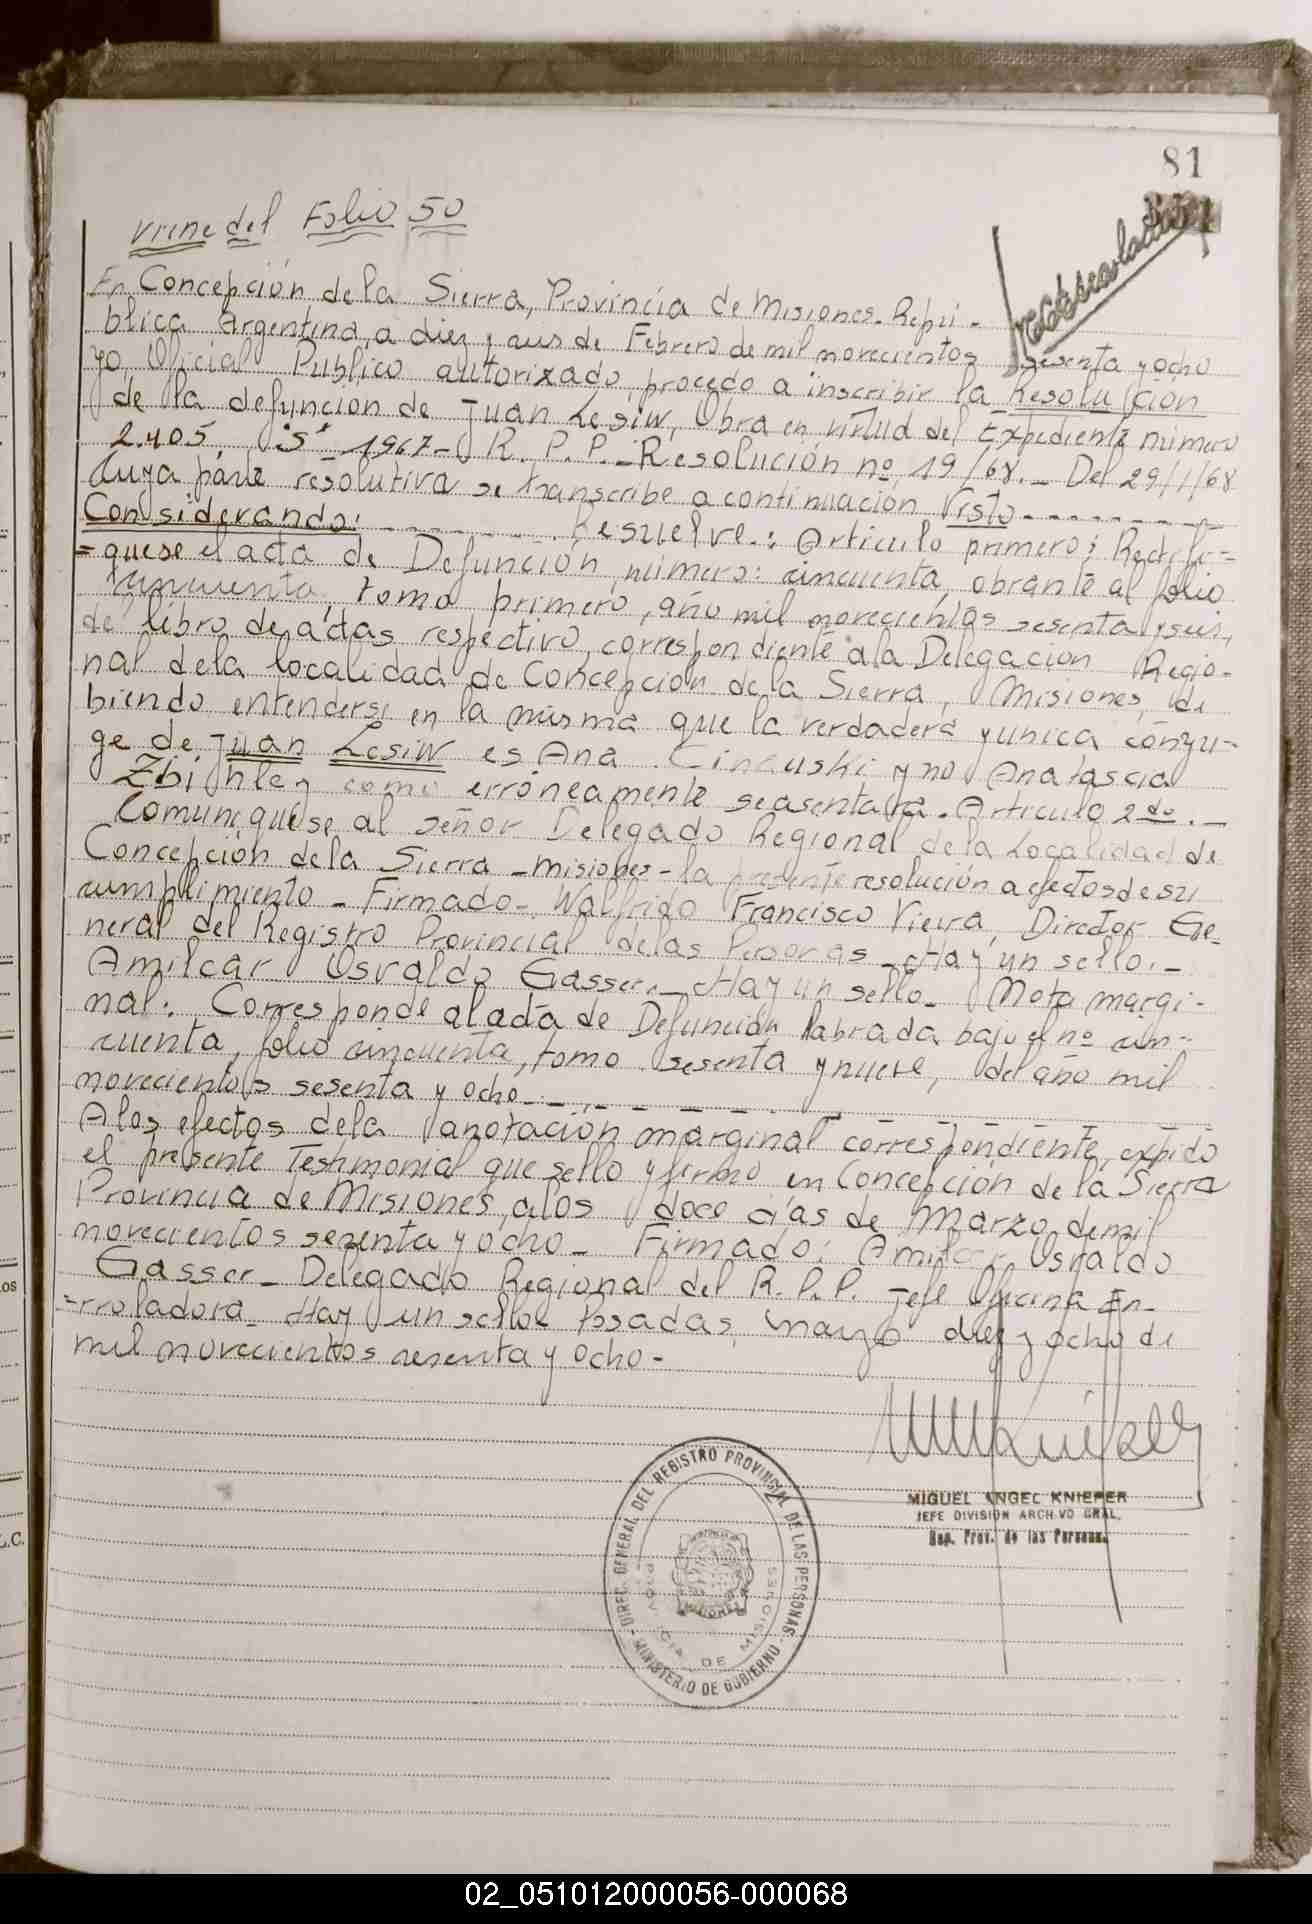 81
Viene del Folio 50
En Concepción de la Sierra, Provincia de Misiones. Repú-
blica Argentina, a diez y seis de Febrero de mil novecientos sesenta y ocho
yo, Oficial Público autorizado, procedo a inscribir la Resolución
de la defunción de Juan Lesiw, Obra en virtud del Expediente número
2.405 "S" 1967- R.P.P.- Resolución nº 19/68.- Del 29/1/68
Cuya parte resolutiva se transcribe a continuación Visto - - - - - - - -
Considerando: - - - - - - - - Resuelve.: Articulo primero: Rectifi=
=quese el acta de Defunción, número: cincuenta, obrante al folio
cincuenta tomo primero, año mil novecientos sesenta y seis,
de libro de actas respectivo, correspondiente a la Delegación Regio-
nal de la localidad de Concepción de la Sierra, Misiones, de
biendo entenderse en la misma que la verdadera y unica cónyu-
ge de Juan Lesiw es Ana y no Anatascia
como erróneamente se asentara. Articulo 2do.-
Comuniquese al señor Delegado Regional de la Localidad de
Concepción de la Sierra - Misiones - la presente resolución a efectos de su
cumplimiento - Firmado - Walfrido Francisco Vieira, Director Ge-
neral del Registro Provincial de las Personas - Hay un sello.-
Amilcar Osvaldo Gasser - Hay un sello - Nota margi-
nal: Corresponde al acta de Defunción labrada bajo el nº cin-
cuenta, folio cincuenta, tomo sesenta y nueve, del año mil
novecientos sesenta y ocho - - - - - - - - -
A los efectos de la anotación marginal correspondiente, expido
el presente Testimonial que sello y firmo en Concepción de la Sierra
Provincia de Misiones, a los doce días de Marzo de mil
novecientos sesenta y ocho - Firmado: Amilcar Osvaldo
Gasser - Delegado Regional del R.P.P. Jefe Oficina En-
=rroladora - Hay un sello Posadas, marzo diez y ocho de
mil novecientos sesenta y ocho -
MIGUEL ANGEL KNIEPER
JEFE DIVISION ARCHIVO GRAL.
Reg. Prov. de las Personas
DIREC. GENERAL DEL REGISTRO PROVINCIAL DE LAS PERSONAS
MINISTERIO DE GOBIERNO
PROVINCIA DE MISIONES
MISIONES
02_051012000056-000068